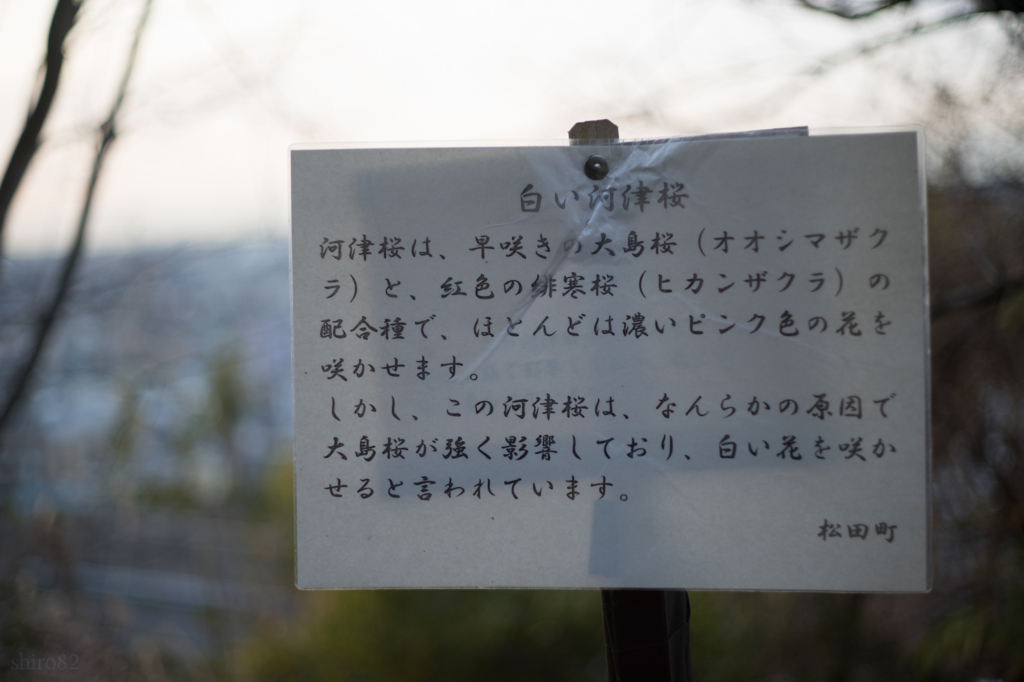 白い河津桜
河津桜は、早咲きの大島桜（オオシマザク
ラ）と、紅色の緋寒桜（ヒカンザクラ）の
配合種で、ほとんどは濃いピンク色の花を
咲かせます。
しかし、この河津桜は、なんらかの原因で
大島桜が強く影響しており、白い花を咲か
せると言われています。
松田町
shiro82